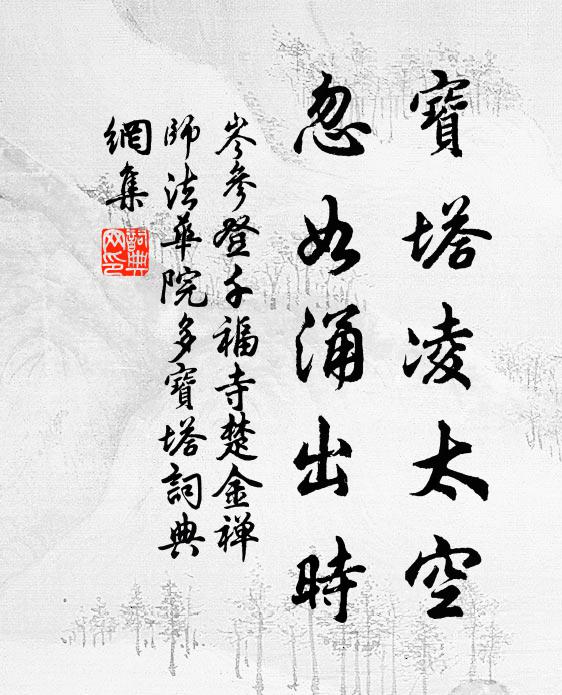 寶塔凌太空
忽如涌出時
岑參登千福寺楚金禅
師法華院多寶塔詞典
網集
詞典
网印